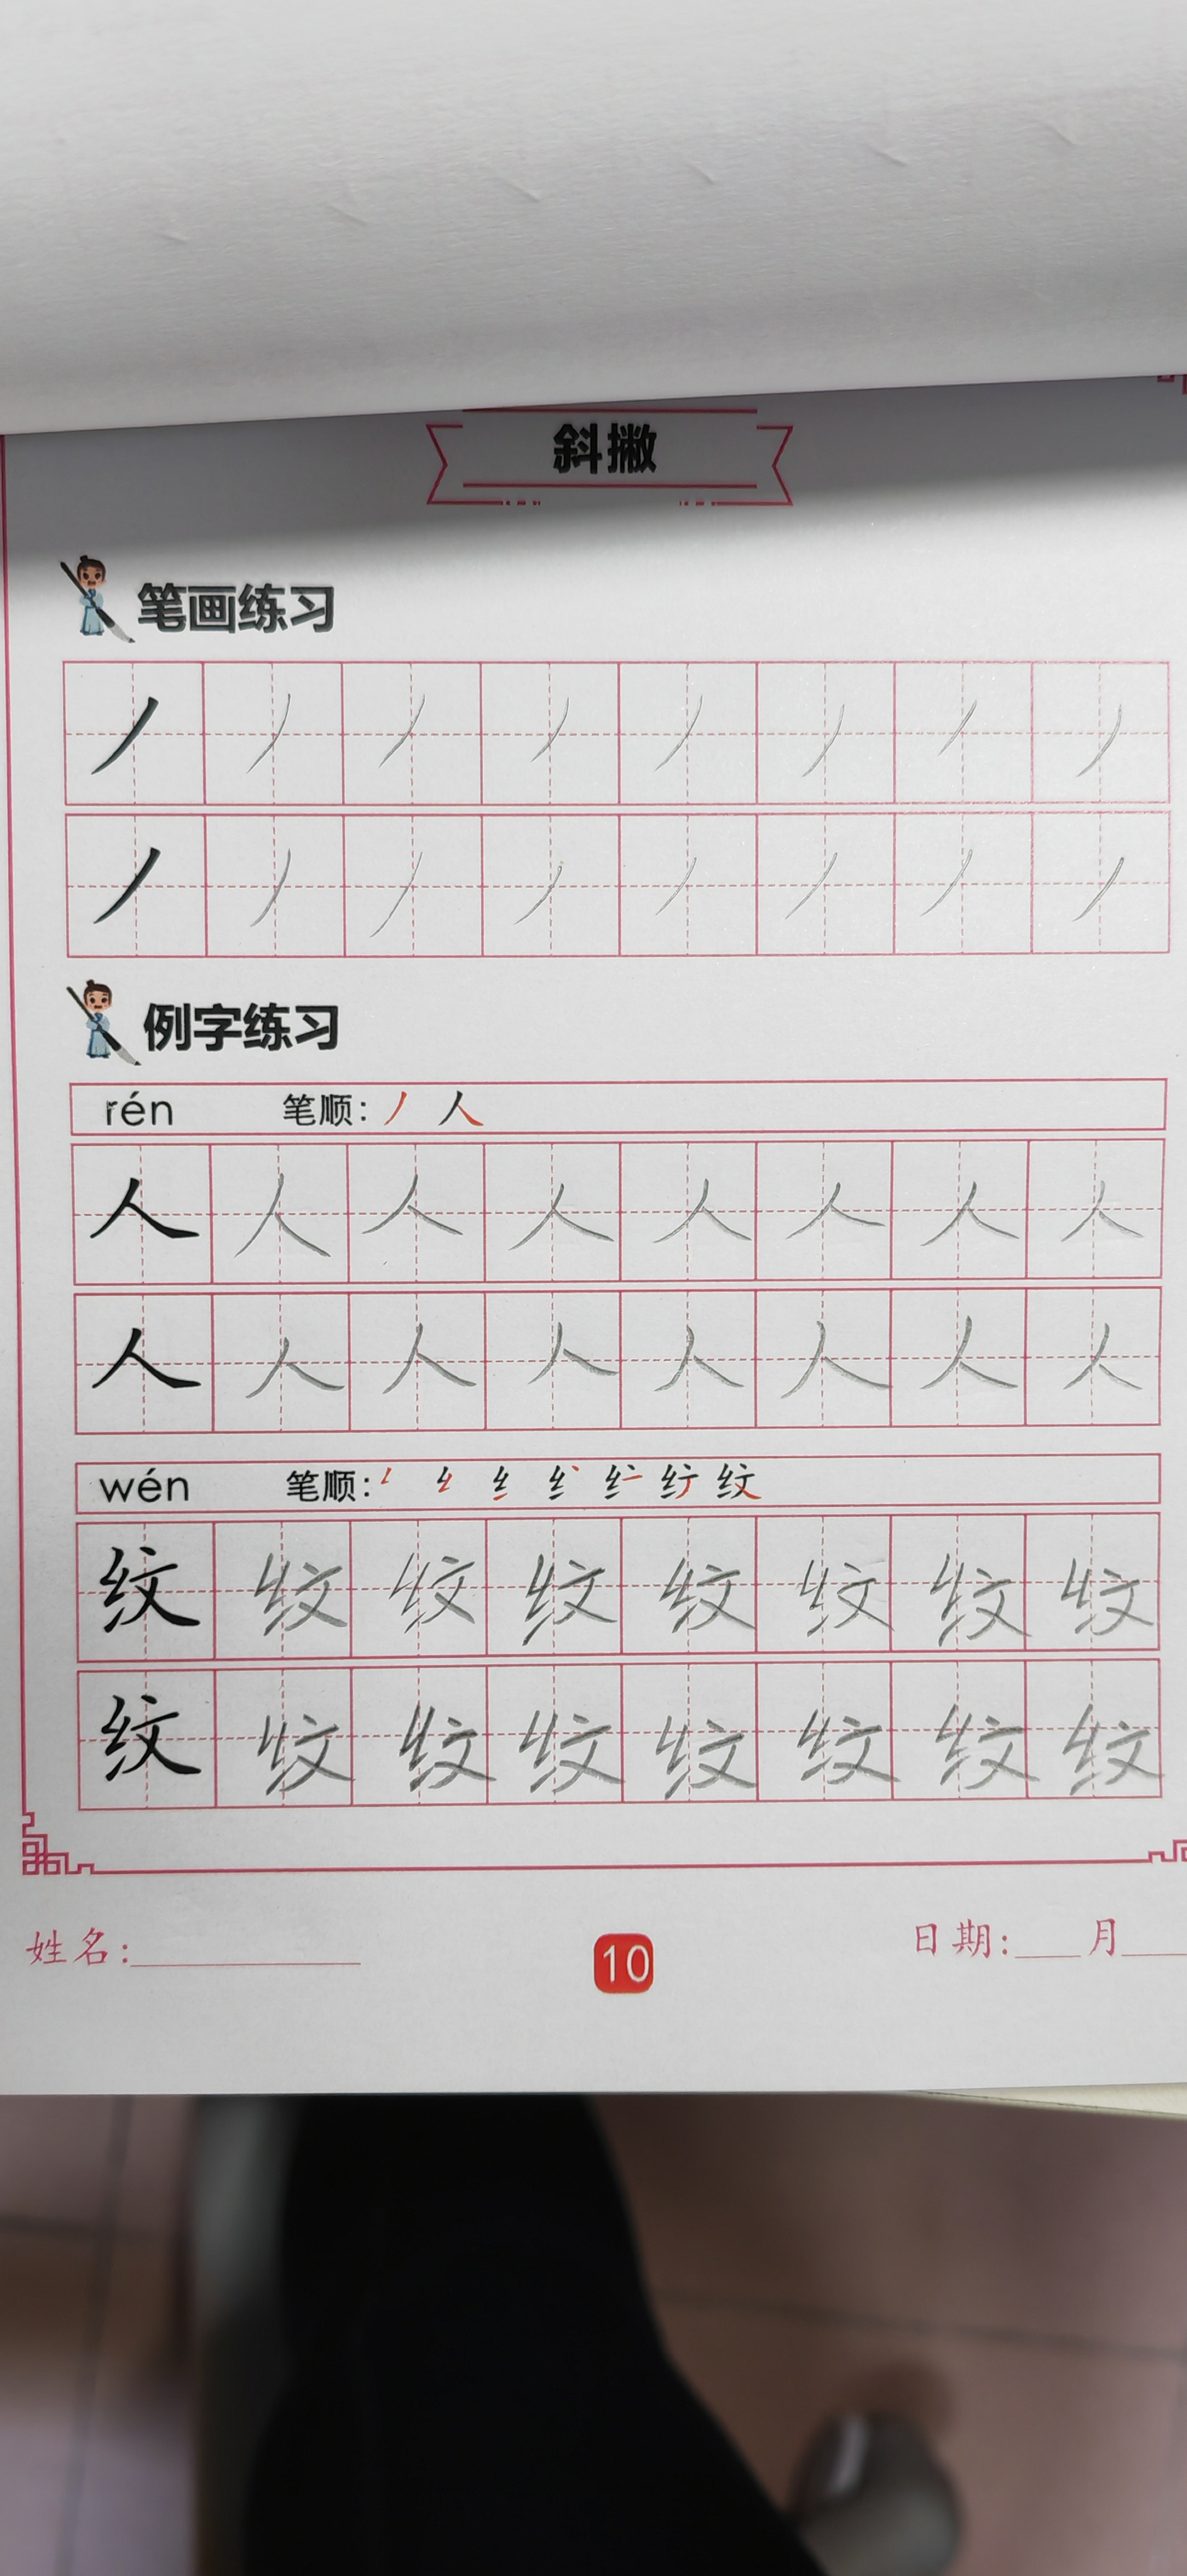 斜撇
笔画练习
丿 丿 丿 丿 丿 丿 丿 丿
丿 丿 丿 丿 丿 丿 丿 丿
例字练习
rén 笔顺: 丿 人
人 人 人 人 人 人 人 人
人 人 人 人 人 人 人 人
wén 笔顺: 纹
纹 纹 纹 纹 纹 纹 纹 纹
纹 纹 纹 纹 纹 纹 纹 纹
姓名: 10 日期: 月